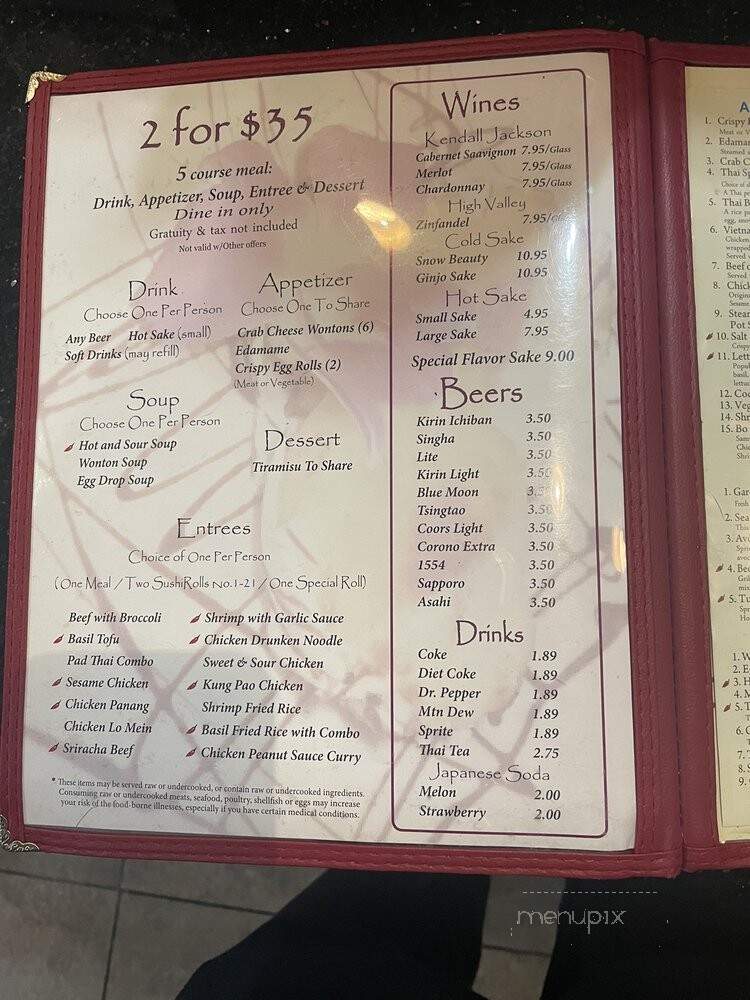 2 for $35
5 course meal:
Drink, Appetizer, Soup, Entree & Dessert
Dine in only
Gratuity & tax not included
Not valid w/Other offers
Drink
Choose One Per Person
Any Beer Hot Sake (small)
Soft Drinks (may refill)
Appetizer
Choose One To Share
Crab Cheese Wontons (6)
Edamame
Crispy Egg Rolls (2)
(Meat or Vegetable)
Soup
Choose One Per Person
Hot and Sour Soup
Wonton Soup
Egg Drop Soup
Dessert
Tiramisu To Share
Entrees
Choice of One Per Person
(One Meal / Two SushiRolls No.1-21 / One Special Roll)
Beef with Broccoli
Basil Tofu
Pad Thai Combo
Sesame Chicken
Chicken Panang
Chicken Lo Mein
Sriracha Beef
Shrimp with Garlic Sauce
Chicken Drunken Noodle
Sweet & Sour Chicken
Kung Pao Chicken
Shrimp Fried Rice
Basil Fried Rice with Combo
Chicken Peanut Sauce Curry
* These items may be served raw or undercooked, or contain raw or undercooked ingredients.
Consuming raw or undercooked meats, seafood, poultry, shellfish or eggs may increase
your risk of the food-borne illnesses, especially if you have certain medical conditions.
Wines
Kendall Jackson
Cabernet Saavignon 7.95/Glass
Merlot 7.95/Glass
Chardonnay 7.95/Glass
High Valley
Zinfandel 7.95/
Cold Sake
Snow Beauty 10.95
Ginjo Sake 10.95
Hot Sake
Small Sake 4.95
Large Sake 7.95
Special Flavor Sake 9.00
Beers
Kirin Ichiban 3.50
Singha 3.50
Lite 3.50
Kirin Light 3.50
Blue Moon 3.50
Tsingtao 3.50
Coors Light 3.50
Corono Extra 3.50
1554 3.50
Sapporo 3.50
Asahi 3.50
Drinks
Coke 1.89
Diet Coke 1.89
Dr. Pepper 1.89
Mtn Dew 1.89
Sprite 1.89
Thai Tea 2.75
Japanese Soda
Melon 2.00
Strawberry 2.00
A
1. Crispy
Meat or V
2. Edamam
Steamed
3. Crab C
4. Thai Sp
Choice of
A Thai
5. Thai B
A rice
egg,
6. Vietna
Chicken
wrapped
Served
7. Beef
Served
8. Chick
Origin
Sesame
9. Stea
Pot
10. Salt
Crispy
11. Lett
Popul
basil,
lettuc
12. Coc
13. Veg
14. Shr
15. Bo
Sam
Chic
Shri
1. Gar
Fresh
2. Sea
This
3. Avo
Spri
avoc
4. Bee
Gril
mix
5. Tu
Spr
Ho
1. W
2. E
3. H
4. M
5. T
6. C
7.
8. S
9.
menupix